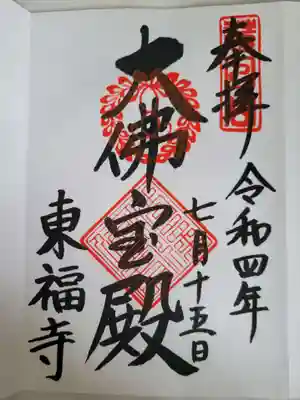 奉拝
令和四年
七月十五日
大佛宝殿
東福寺